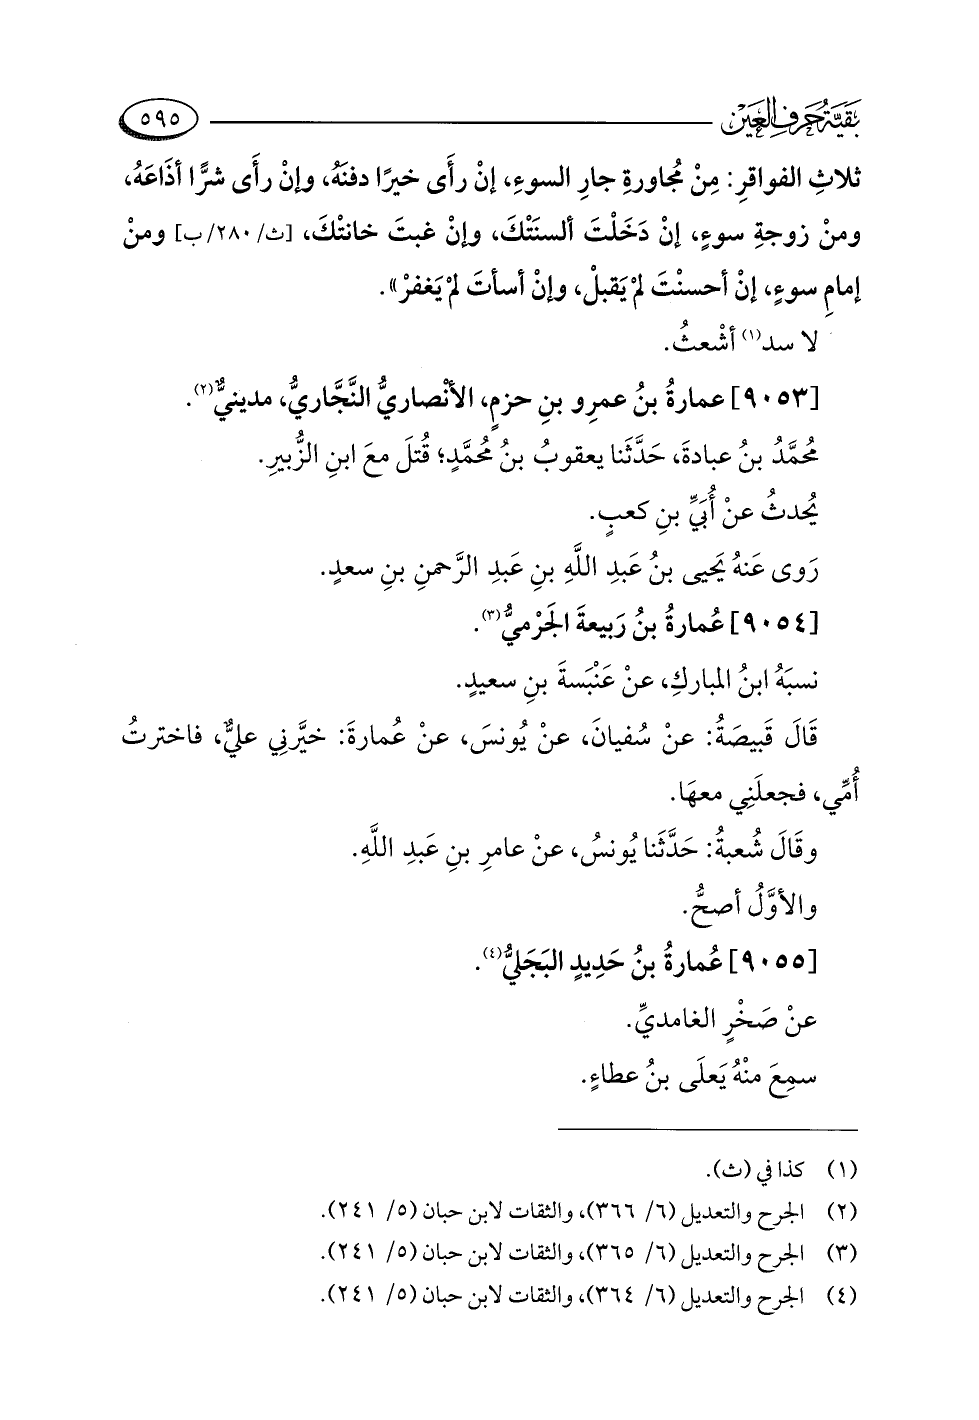 بقية حرف العين
٥٩٥
ثلاثِ الفواقرِ: مِنْ مُجاورةِ جارِ السوءِ، إنْ رأَى خيرًا دفنَهُ، وإنْ رأَى شرًّا أذَاعَهُ،
ومنْ زوجةِ سوءٍ، إنْ دَخَلْتَ ألسنَتْكَ، وإنْ غبتَ خانتْكَ، [ث/ ٢٨٠/ب] ومنْ
إمامِ سوءٍ، إنْ أحسنْتَ لمْ يَقبلْ، وإنْ أسأتَ لمْ يَغفرْ».
لا سد(١) أشْعثُ.
[٩٠٥٣] عمارةُ بنُ عمرِو بنِ حزمٍ، الأنْصاريُّ النَّجَّاريُّ، مدينيٌّ(٢).
مُحمَّدُ بنُ عبادةَ، حَدَّثَنا يعقوبُ بنُ مُحمَّدٍ؛ قُتلَ معَ ابنِ الزُّبيرِ.
يُحدثُ عنْ أُبَيِّ بنِ كعبٍ.
رَوى عَنهُ يَحيى بنُ عَبدِ اللَّهِ بنِ عَبدِ الرَّحمنِ بنِ سعدٍ.
[٩٠٥٤] عُمارةُ بنُ رَبيعةَ الجَرْميُّ(٣).
نسبَهُ ابنُ المباركِ، عنْ عَنْبَسةَ بنِ سعيدٍ.
قَالَ قَبيصَةُ: عنْ سُفيانَ، عنْ يُونسَ، عنْ عُمارةَ: خيَّرني عليٌّ، فاخترتُ
أُمِّي، فجعلَنِي معهَا.
وقَالَ شُعبةُ: حَدَّثَنا يُونسُ، عنْ عامرِ بنِ عَبدِ اللَّهِ.
والأوَّلُ أصحُّ.
[٩٠٥٥] عُمارةُ بنُ حَدِيدٍ البَجَليُّ(٤).
عنْ صَخْرٍ الغامديِّ.
سمِعَ منْهُ يَعلَى بنُ عطاءٍ.
(١) كذا في (ث).
(٢) الجرح والتعديل (٦/ ٣٦٦)، والثقات لابن حبان (٥/ ٢٤١).
(٣) الجرح والتعديل (٦/ ٣٦٥)، والثقات لابن حبان (٥/ ٢٤١).
(٤) الجرح والتعديل (٦/ ٣٦٤)، والثقات لابن حبان (٥/ ٢٤١).